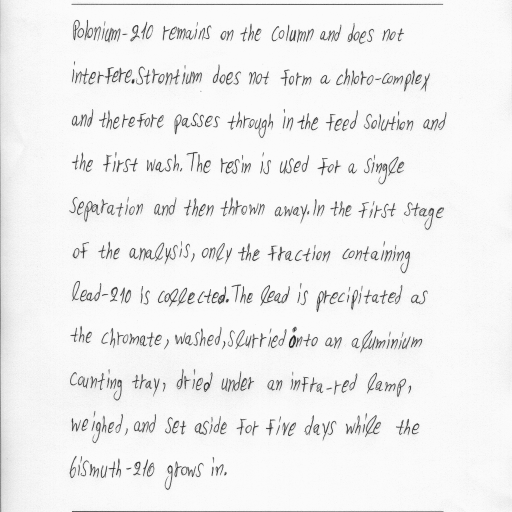 Polonium-210 remains on the column and does not
interfere. Strontium does not form a chloro-complex
and therefore passes through in the feed solution and
the first wash. The resin is used for a single
separation and then thrown away. In the first stage
of the analysis, only the fraction containing
lead-210 is collected. The lead is precipitated as
the chromate, washed, slurried onto an aluminium
counting tray, dried under an infra-red lamp,
weighed, and set aside for five days while the
bismuth-210 grows in.